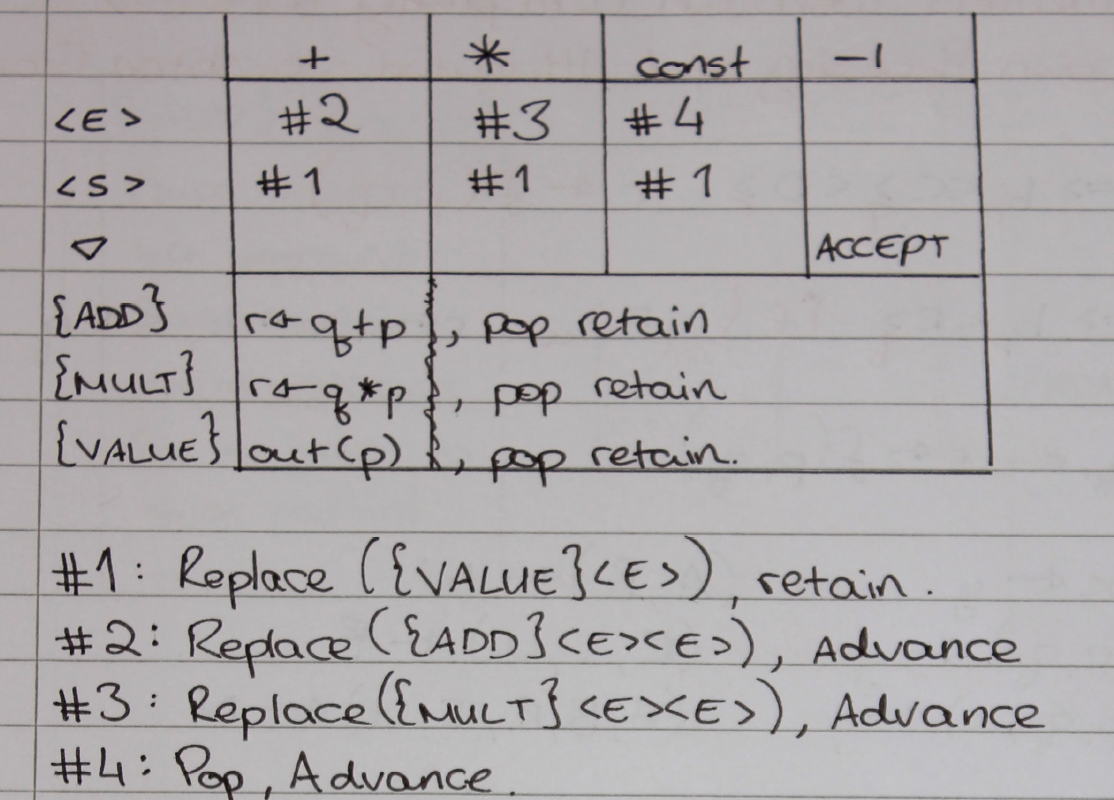 + * const -1
<E> #2 #3 #4
<S> #1 #1 #1
▽ ACCEPT
{ADD} r← q+p }, pop retain
{MULT} r← q*p }, pop retain
{VALUE} out(p) }, pop retain.
#1: Replace ({VALUE}<E>), retain.
#2: Replace ({ADD}<E><E>), Advance
#3: Replace({MULT}<E><E>), Advance
#4: Pop, Advance.